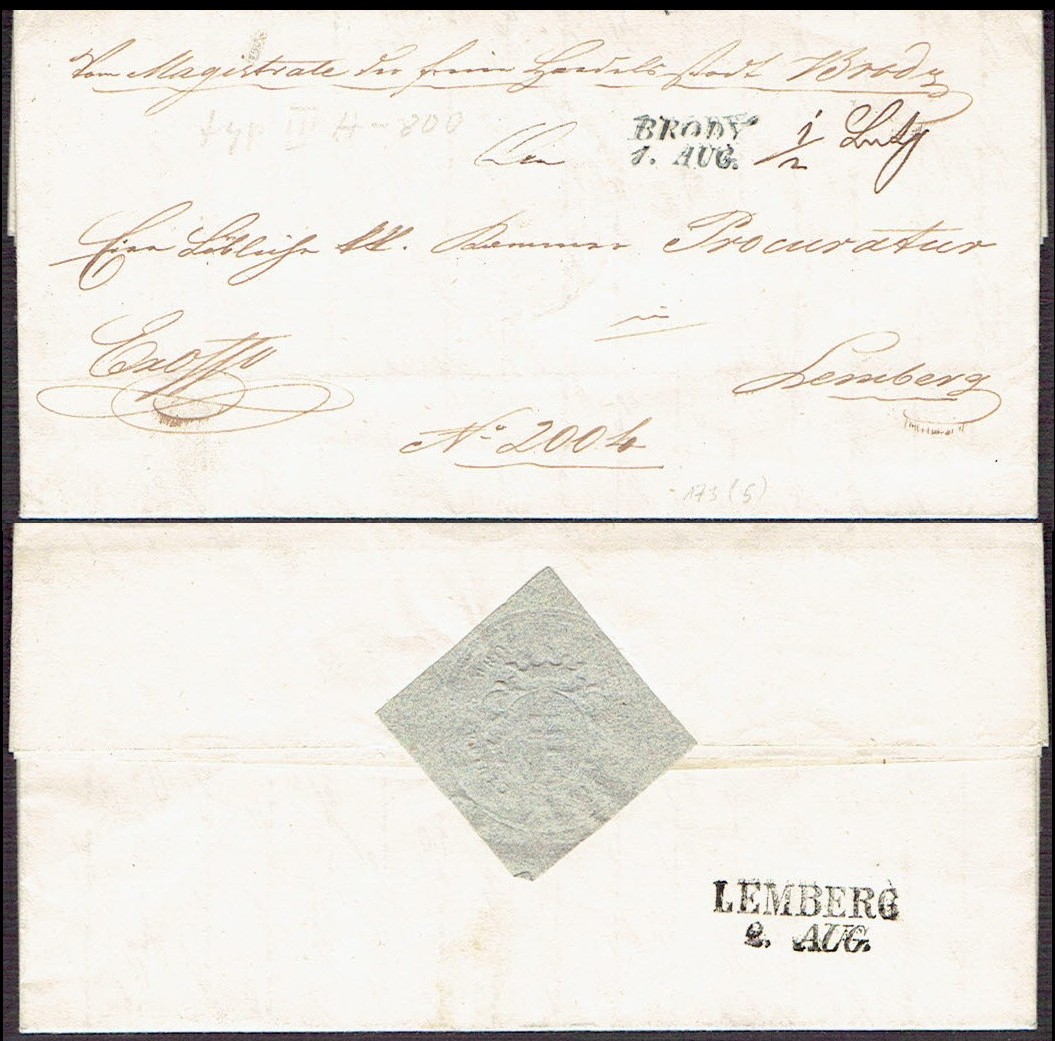 Vom Magistrate der freien Handelsstadt Brody
H - 800
An BRODY 1/2 Loth
1. AUG.
Eine Löbliche kk. Kammer Procuratur
in
Exoffo Lemberg
No. 2004
173 (5)
LEMBERG
2. AUG.